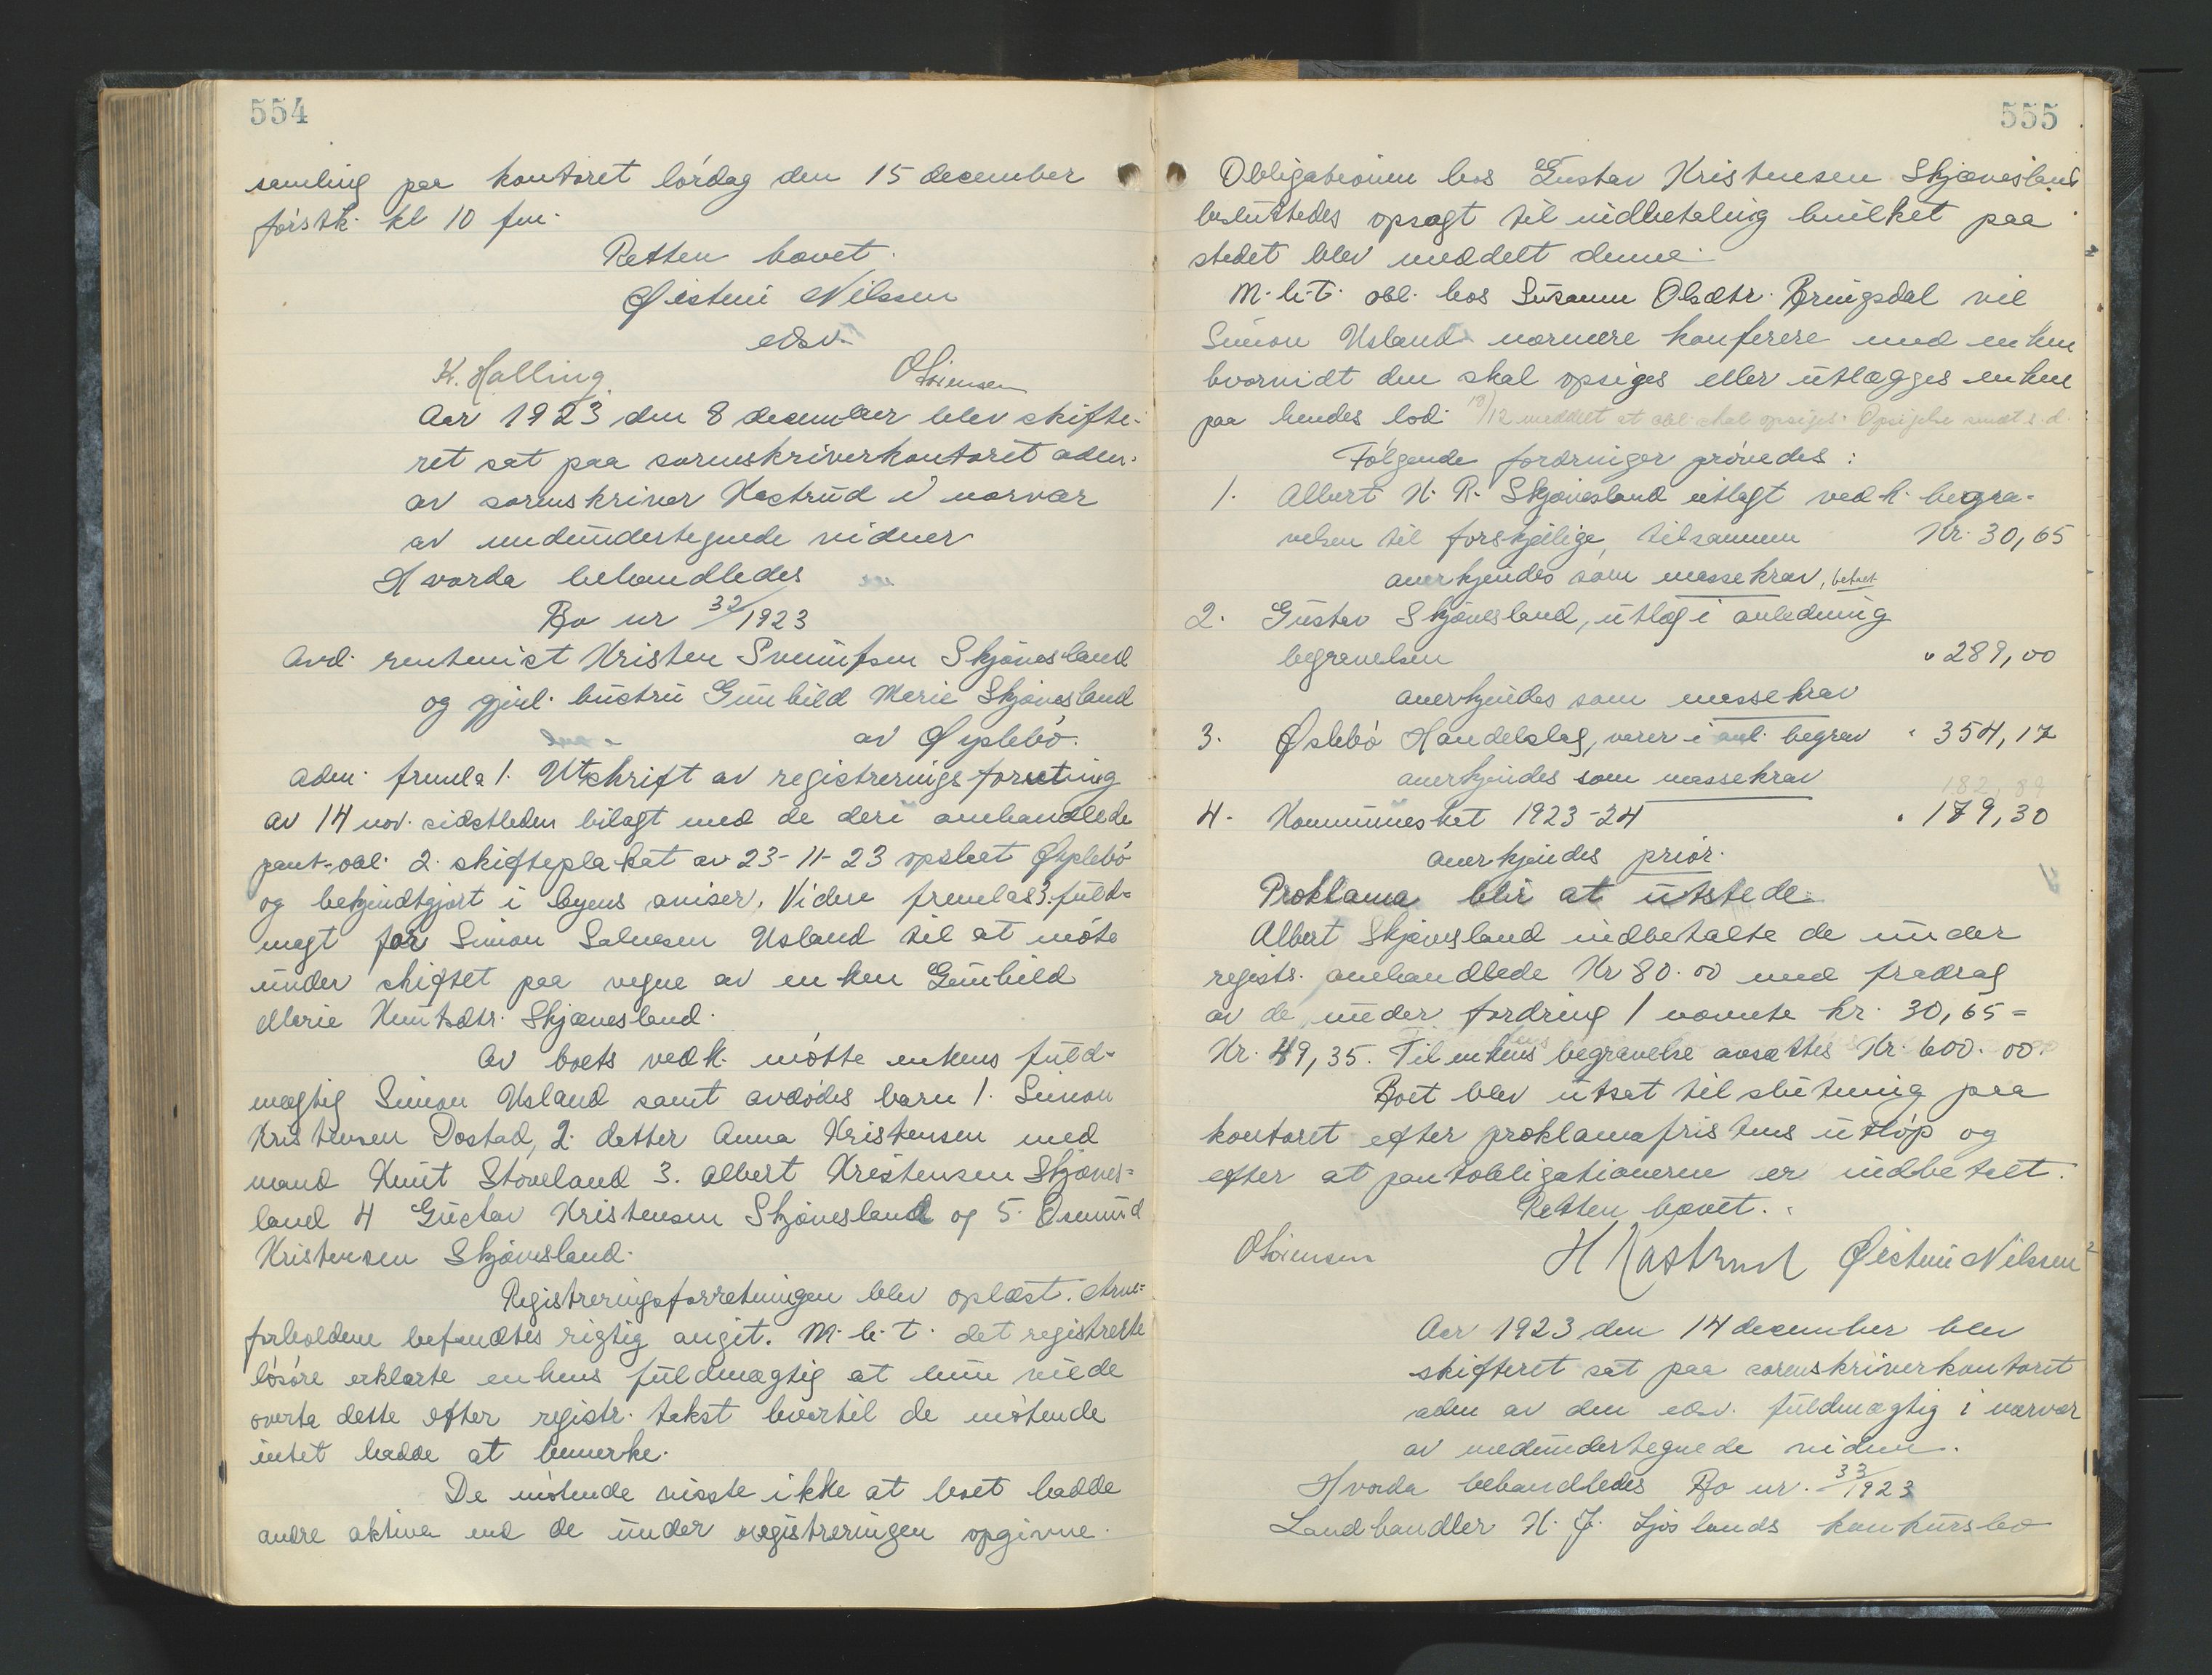 554
samling paa kontoret lördag den 15 december
förstk. kl 10 fm.
Retten hævet.
Øistein Nilssen
edsv.
K. Halling
O Sörensen
Aar 1923 den 8 december blev skifte-
ret sat paa sorenskriverkontoret adm.
av sorenskriver Kastrud i nærvær
av medundertegnede vidner
Hvorda behandledes
Bo nr 32/1923
Avd. rentenist Kristen Svenüfsen Skjævesland
og gjenl. hustru Gunhild Marie Skjævesland
av Øyslebö.
Adm. fremla 1. Utskrift av registreringsforretning
av 14 nov. sidstleden bilagt med de deri omhandlede
pant-obl. 2. skifteplakat av 23-11-23 opslaat Øyslebö
og bekjendtgjort i byens aviser. Videre fremlas 3. fuld-
magt for Simon Salvesen Usland til at möte
under skiftet paa vegne av enken Gunhild
Marie Knutsdtr. Skjævesland.
Av boets vedk. mötte enkens fuld-
mægtig Simon Usland samt avdödes barn 1. Simon
Kristensen Dostad, 2. datter Anna Kristensen med
mand Knut Stöveland 3. Albert Kristensen Skjæves-
land 4 Gustav Kristensen Skjævesland og 5. Osmund
Kristensen Skjævesland.
Registreringsforretningen blev oplæst. Arve-
forholdene befandtes rigtig angit. M.h.t. det registrerte
lösöre erklærte enkens fuldmægtig at hun vilde
overta dette efter registr. takst hvortil de mötende
intet hadde at bemerke.
De mötende visste ikke at boet hadde
andre aktiva end de under registreringen opgivne.
555
Obligationen hos Gustav Kristensen Skjævesland
besluttedes opsagt til indbetaling hvilket paa
stedet blev meddelt denne.
M.h.t. obl. hos Susanne Olsdtr. Bringsdal vil
Simon Usland nærmere konferere med enken
hvorvidt den skal opsiges eller utlægges enken
paa hendes lod. 18/12 meddelt at obl. skal opsiges. Opsigelse sendt s.d.
Følgende fordringer prövedes:
1. Albert K. R. Skjævesland utlagt vedk. begra-
velsen til forskjellige, tilsammen Kr. 30,65
anerkjendes som massekrav, betalt
2. Gustav Skjævesland, utlæg i anledning
begravelsen " 289,00
anerkjendes som massekrav
3. Øslebö Handelslag, varer i anl. begrav " 354,17
anerkjendes som massekrav
182,89
4. Kommuneskat 1923-24 " 179,30
anerkjendes prior.
Proklama blir at utstede.
Albert Skjævesland indbetalte de under
registr. omhandlede Kr 80.00 med fradrag
av de under fordring 1 nævnte kr. 30,65 =
Kr. 49,35. Til enkens begravelse avsættes Kr. 600.00.
Boet blev utsat til slutning paa
kontoret efter proklamafristens utlöp og
efter at pantobligationerne er indbetalt.
Retten hævet.
O Sörensen
H Kastrud
Øistein Nilssen
Aar 1923 den 14 december blev
skifteret sat paa sorenskriverkontoret
adm av den edsv. fuldmægtig i nærvær
av medundertegnede vidner.
Hvorda behandledes Bo nr. 33/1923
Landhandler K. J. Ljoslands konkursbo